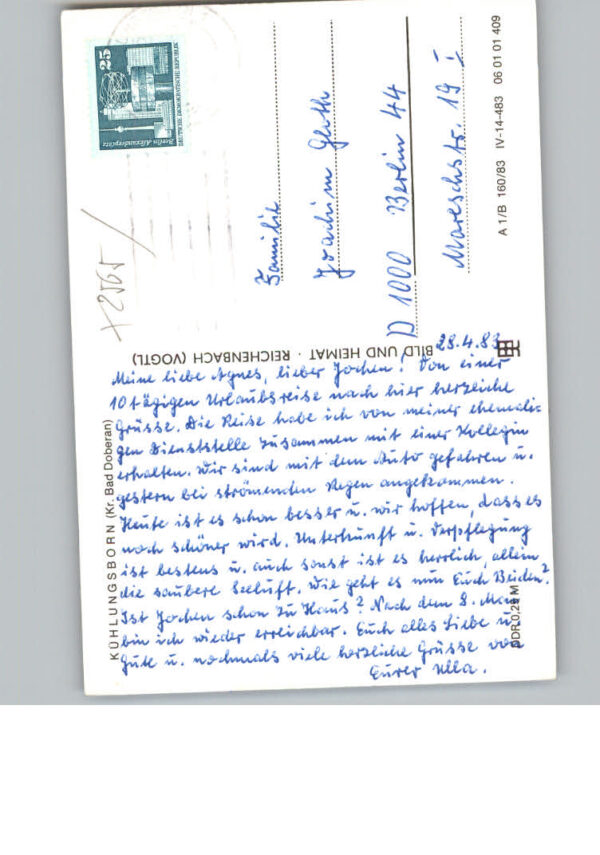 25
DEUTSCHE DEMOKRATISCHE REPUBLIK
Berlin Alexanderplatz
+ 2565 /
Familie
Joachim Gloth
D 1000 Berlin 44
Mareschstr. 19 I
A 1/B 160/83 IV-14-483 06 01 01 409
BILD UND HEIMAT · REICHENBACH (VOGTL)
KÜHLUNGSBORN (Kr. Bad Doberan)
DDR 0,25 M
28.4.83
Meine liebe Agnes, lieber Jochen! Von einer
10 tägigen Urlaubsreise nach hier herzliche
Grüsse. Die Reise habe ich von meiner ehemali-
gen Dienststelle zusammen mit einer Kollegin
erhalten. Wir sind mit dem Auto gefahren u.
gestern bei strömenden Regen angekommen.
Heute ist es schon besser u. wir hoffen, dass es
noch schöner wird. Unterkunft u. Verpflegung
ist bestens u. auch sonst ist es herrlich, allein
die saubere Seeluft. Wie geht es nun Euch Beiden?
Ist Jochen schon zu Haus? Nach dem 8. Mai
bin ich wieder erreichbar. Euch alles Liebe u.
Gute u. nochmals viele herzliche Grüsse von
Eurer Ulla.